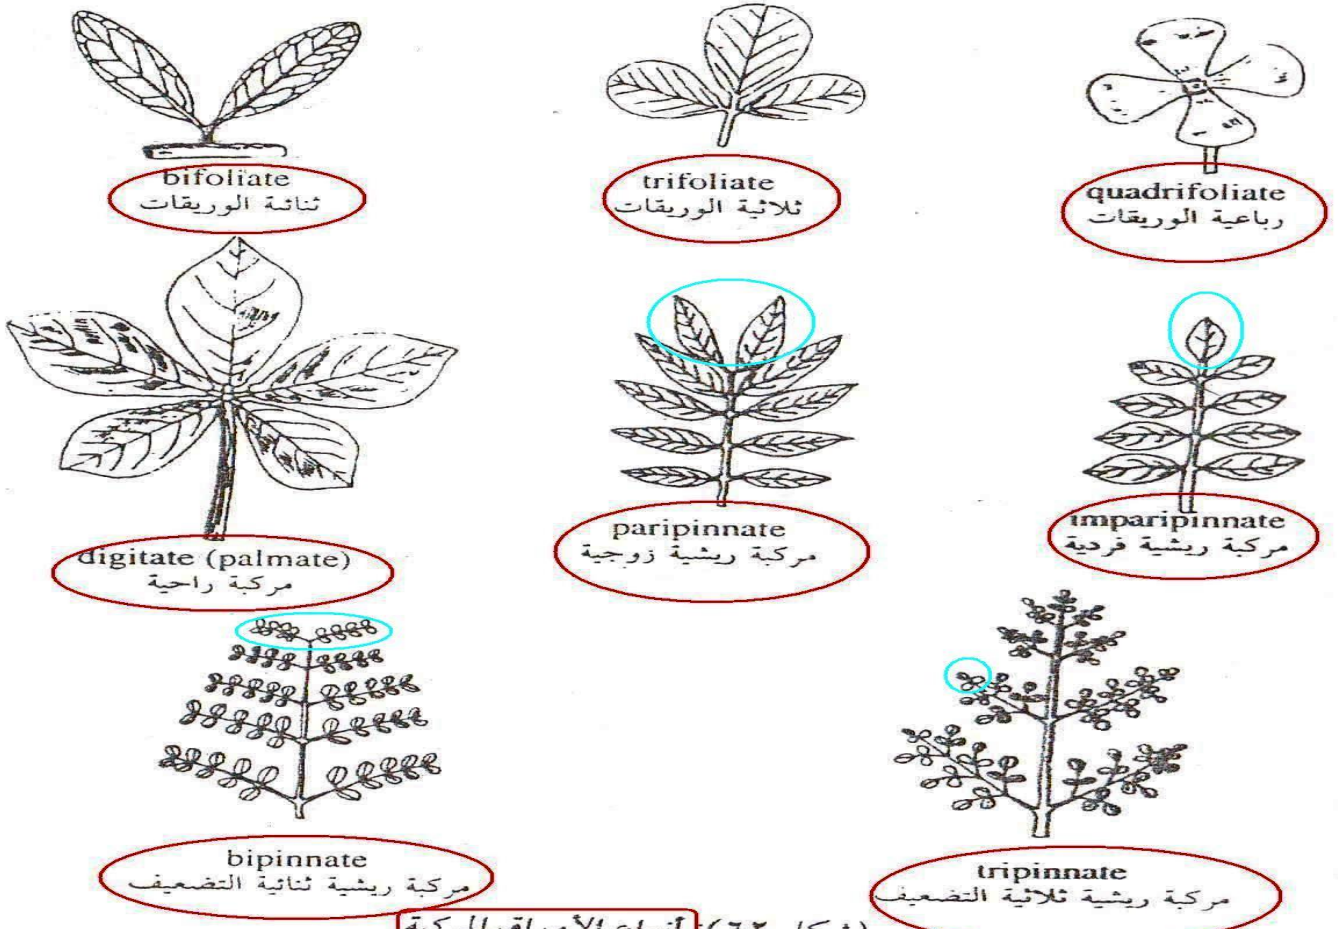 bifoliate
ثنائية الوريقات
trifoliate
ثلاثية الوريقات
quadrifoliate
رباعية الوريقات
digitate (palmate)
مركبة راحية
paripinnate
مركبة ريشية زوجية
imparipinnate
مركبة ريشية فردية
bipinnate
مركبة ريشية ثنائية التضعيف
tripinnate
مركبة ريشية ثلاثية التضعيف
أنواع الأوراق المركبة